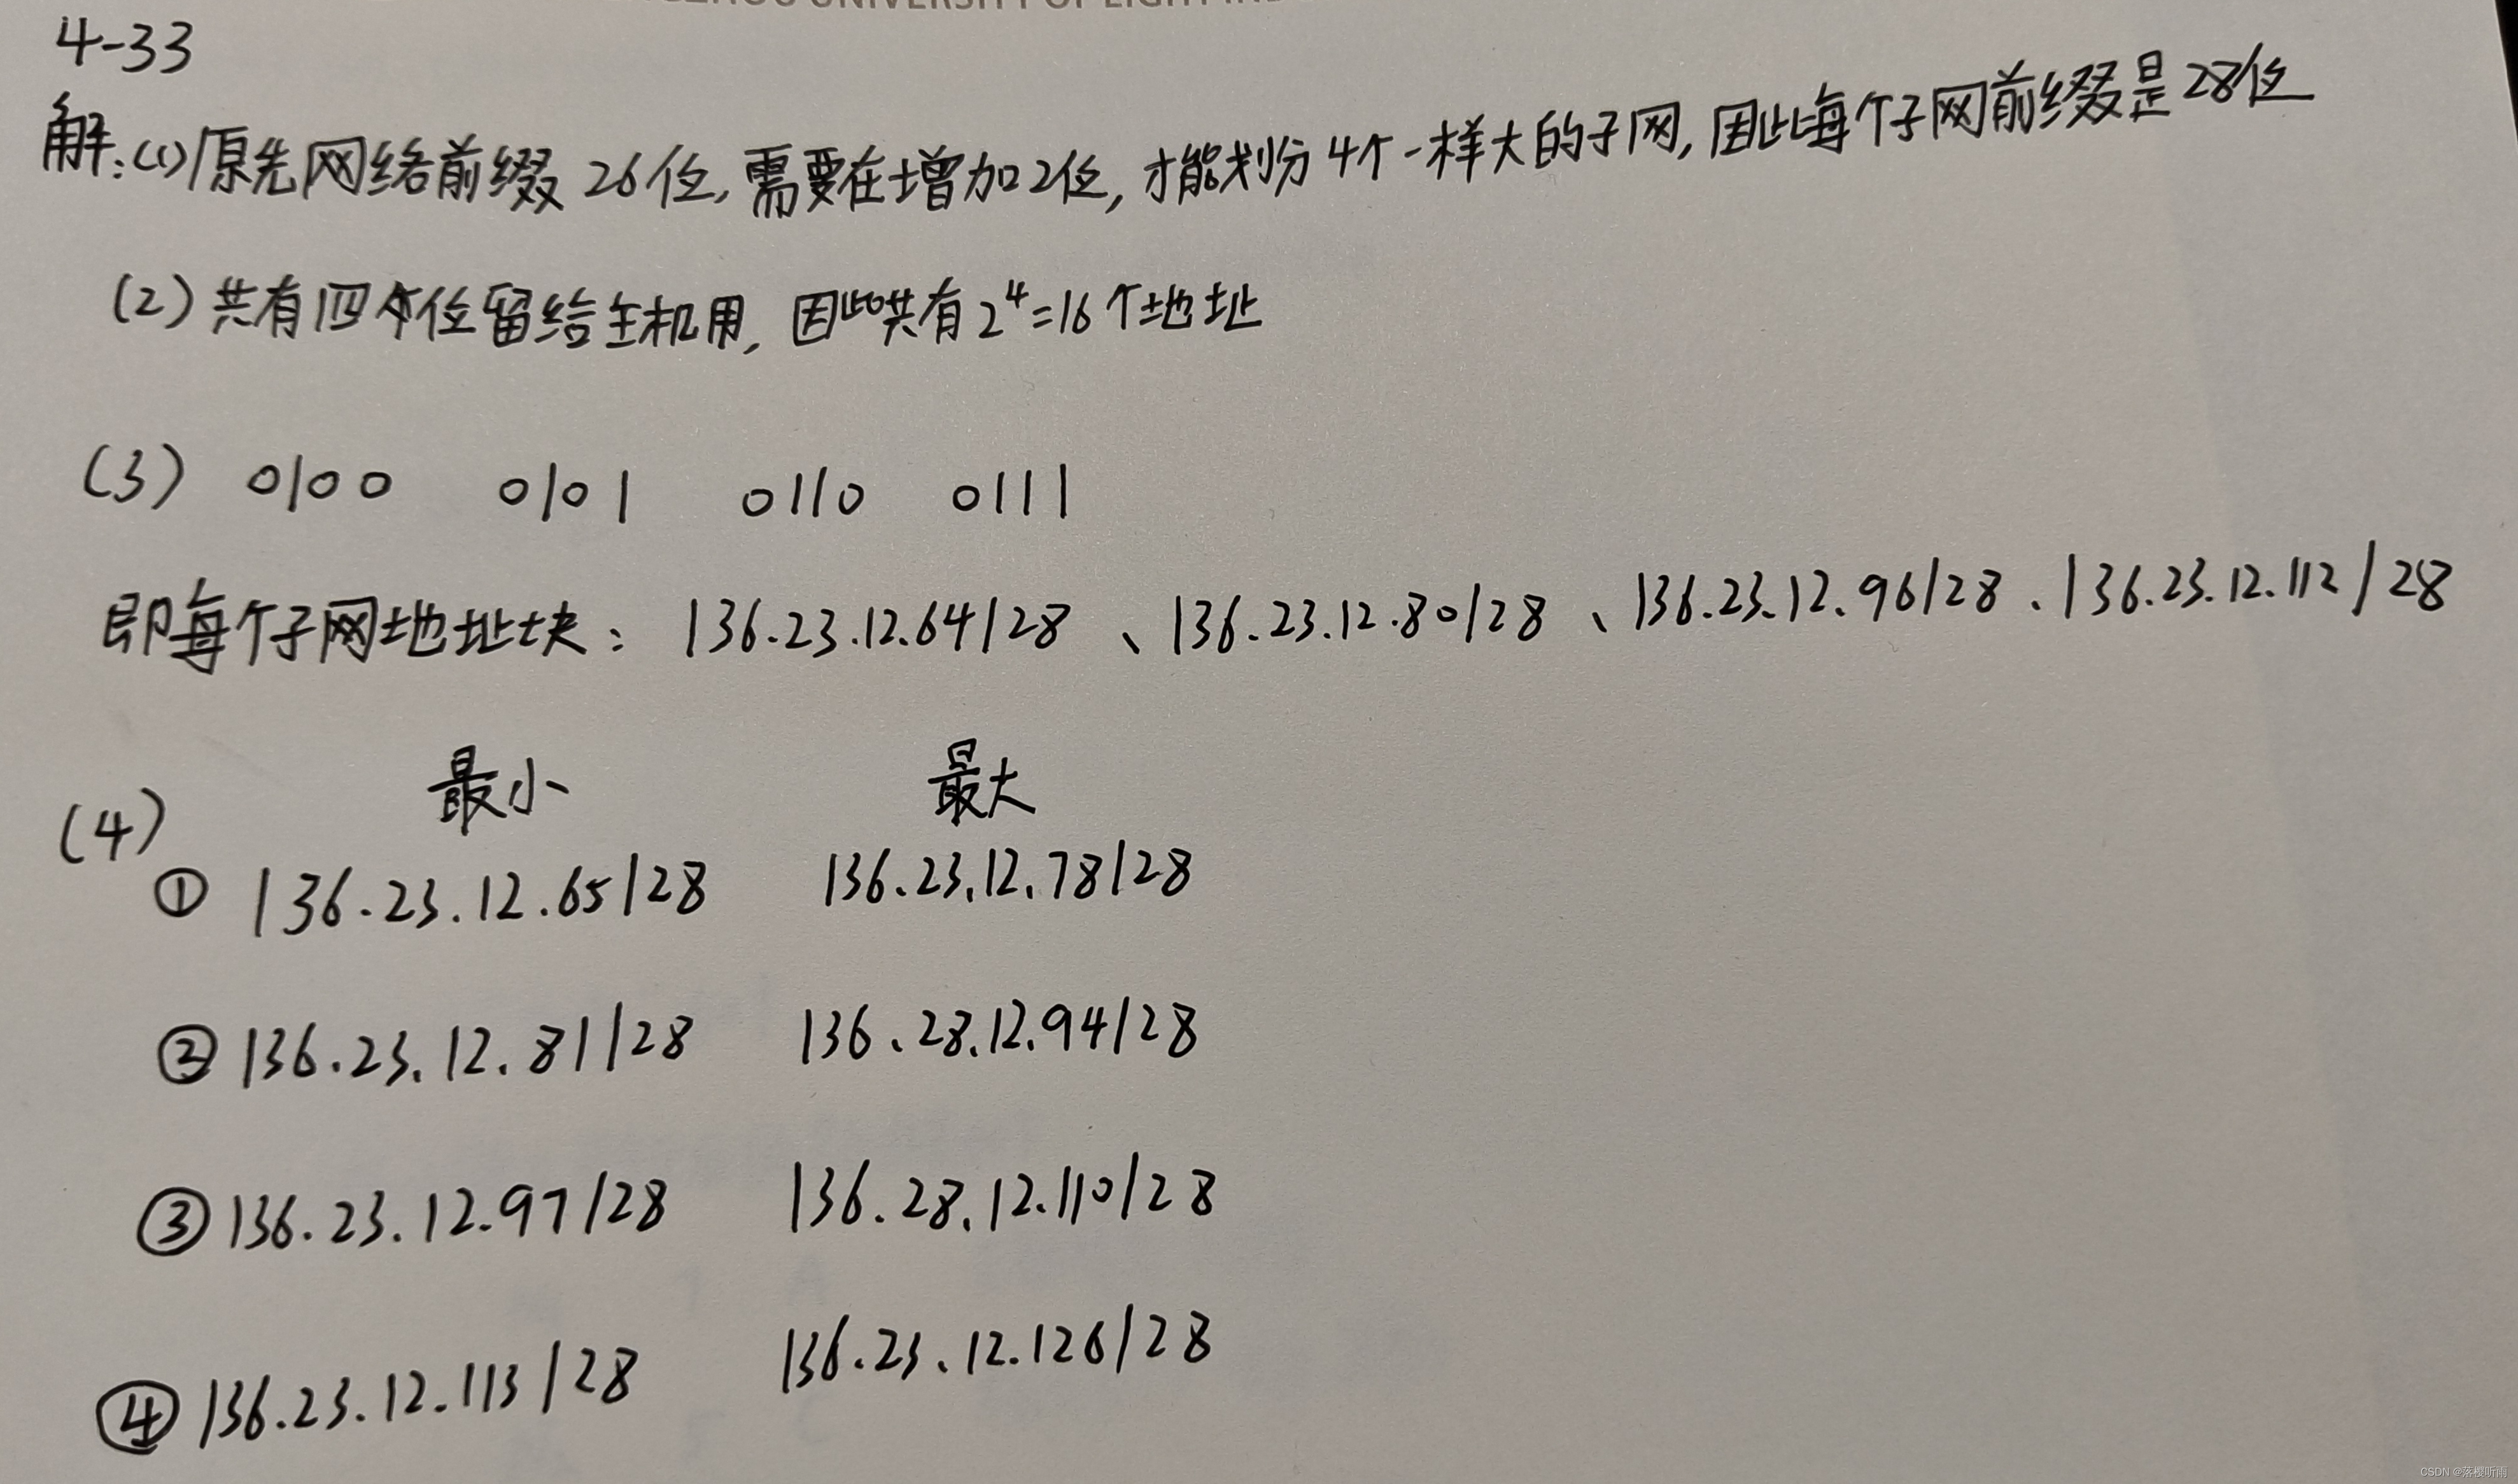 4-33
解:(1)原先网络前缀26位,需要在增加2位,才能划分4个一样大的子网,因此每个子网前缀是28位
(2)共有四个位留给主机用,因此共有2⁴=16个地址
(3) 0100 0101 0110 0111
即每个子网地址块: 136.23.12.64/28、136.23.12.80/28、136.23.12.96/28、136.23.12.112/28
最小 最大
(4)
① 136.23.12.65/28 136.23.12.78/28
② 136.23.12.81/28 136.28.12.94/28
③ 136.23.12.97/28 136.28.12.110/28
④ 136.23.12.113/28 136.23.12.126/28
CSDN @落樱听雨